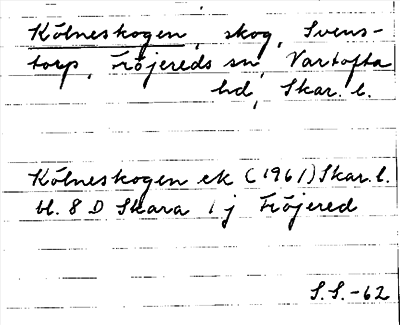 Kölneskogen, skog, Svens-
torp, Fröjereds sn, Vartofta
hd, Skar. l.
Kölneskogen ek (1961) Skar. l.
bl. 8 D Skara 1 j Fröjered
S.S.-62